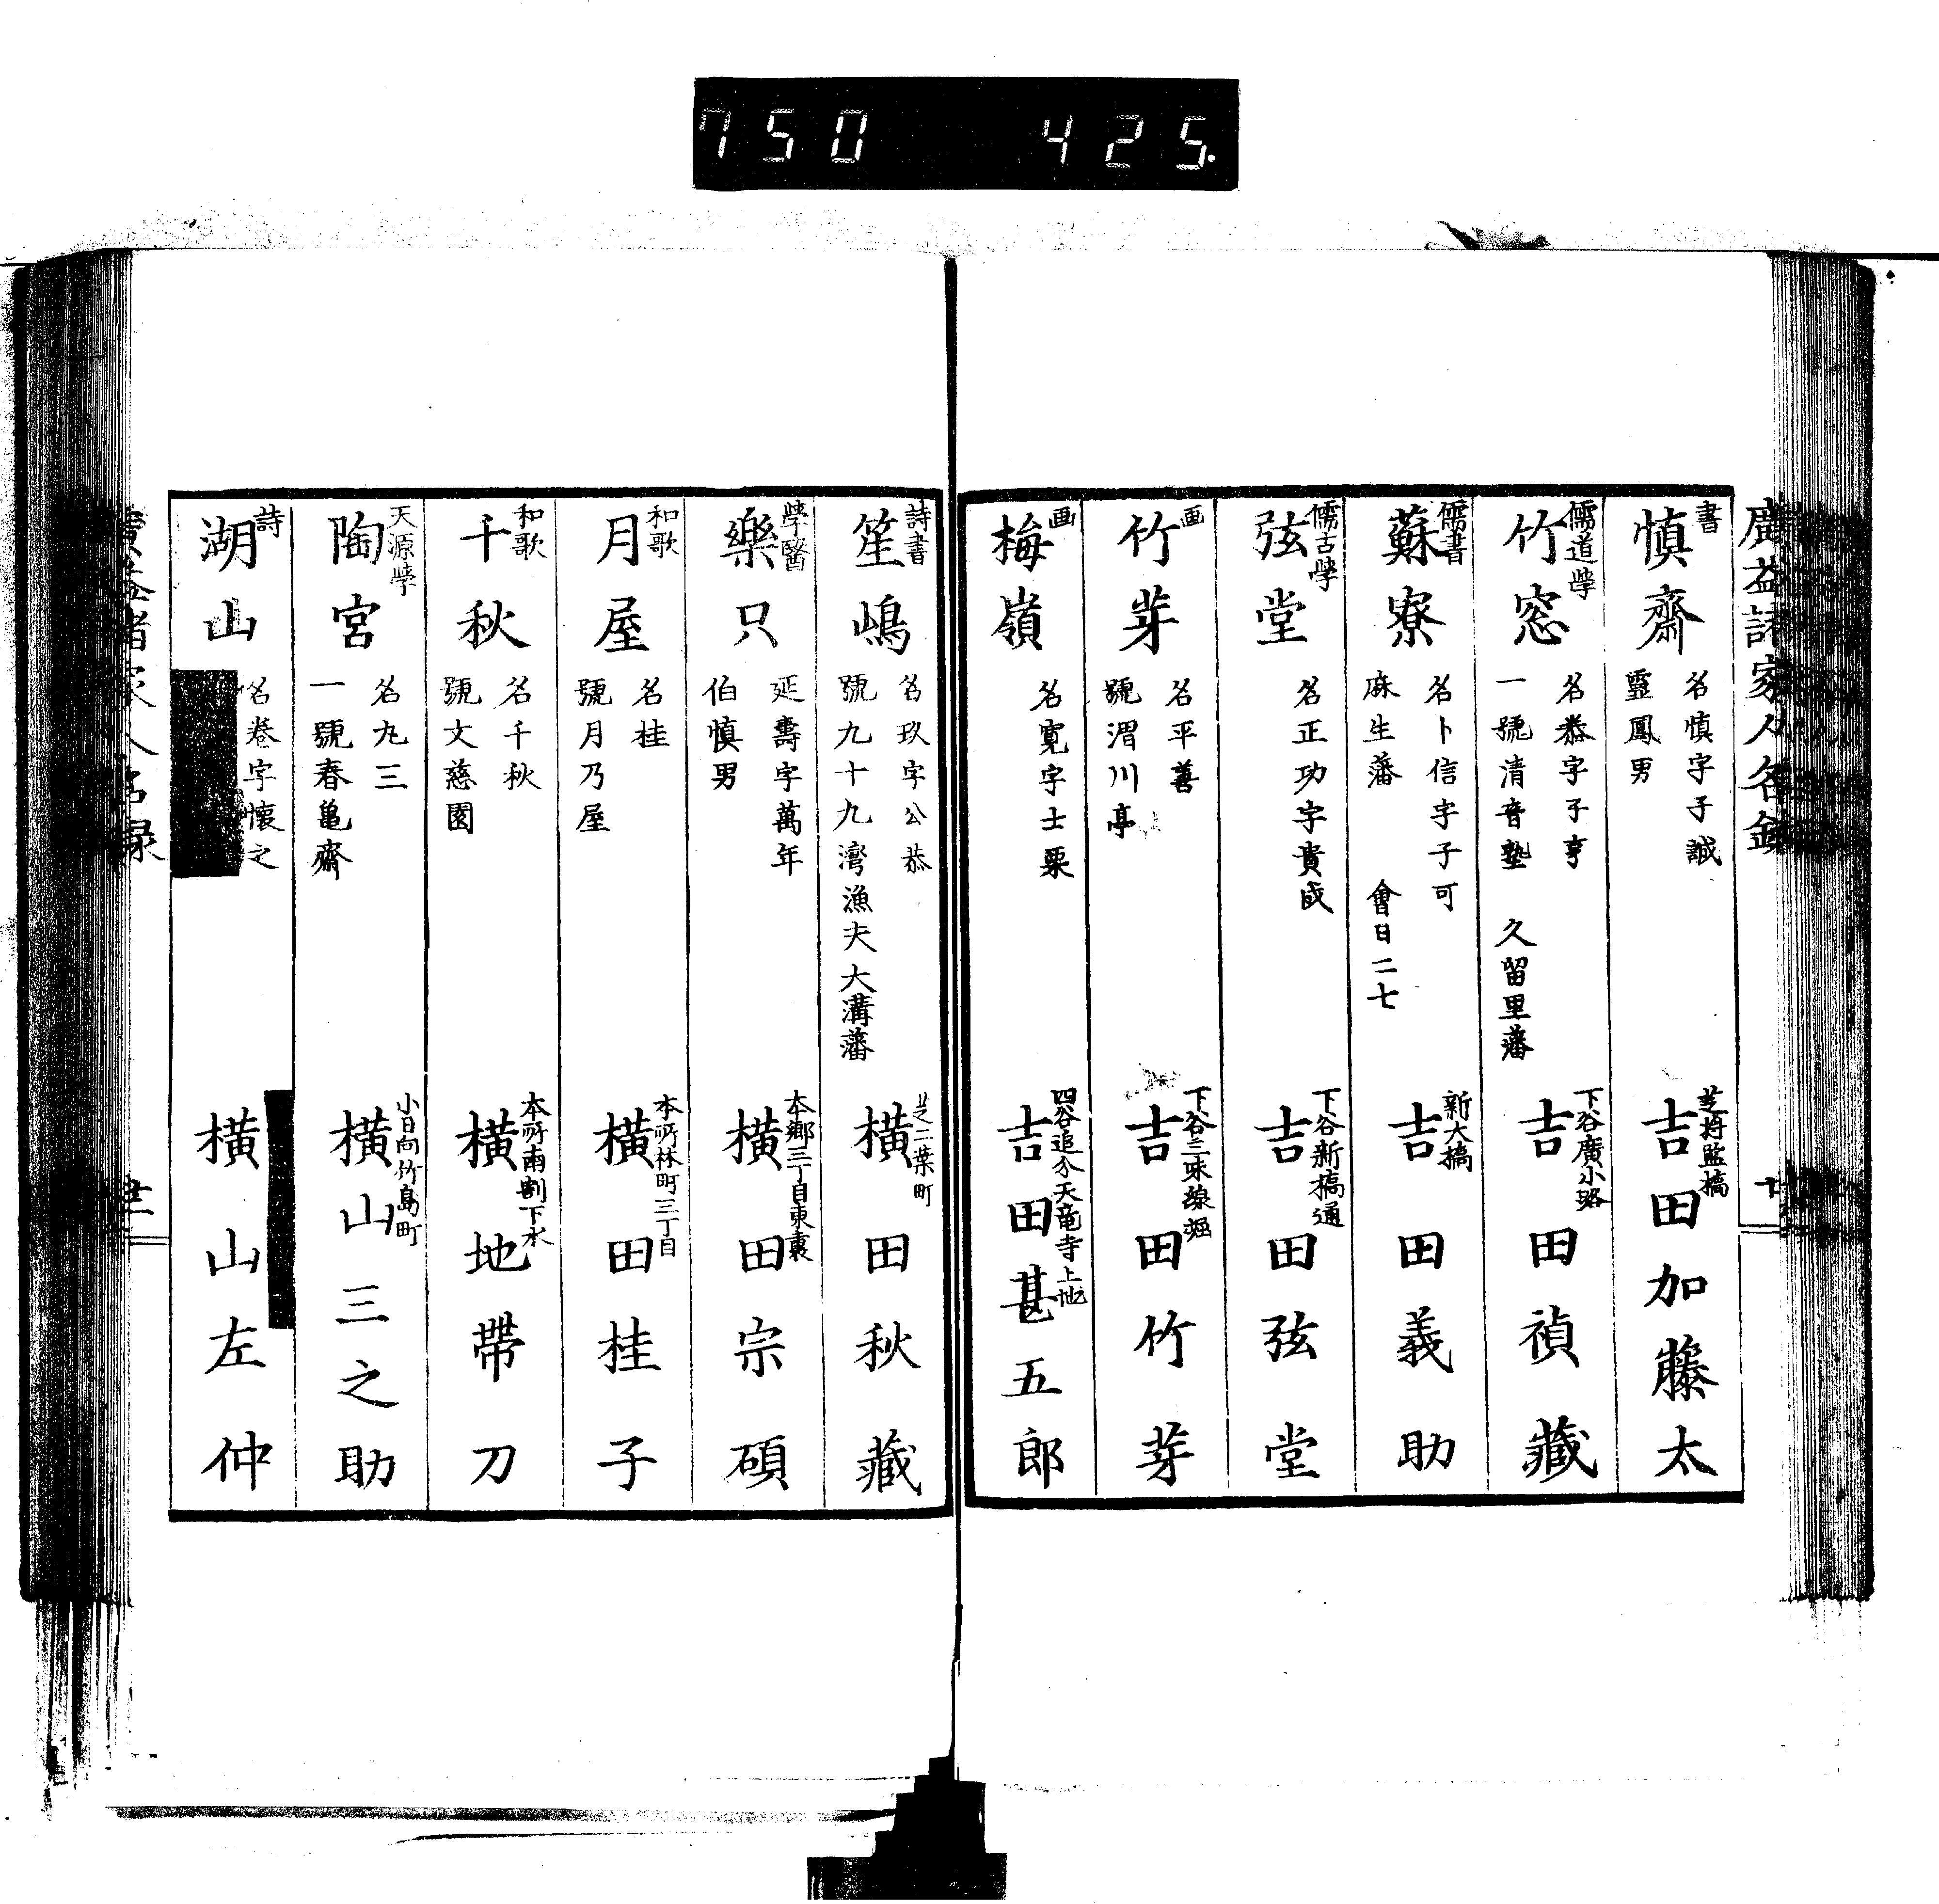 750 425.
廣益諸家人名録
書
慎齋
名慎字子誠
靈鳳男
芝将監橋
吉田加藤太
儒道學
竹窓
名恭字子亨
一號清音塾 久留里藩
下谷廣小路
吉田禎藏
儒書
蘇寮
名卜信字子可
麻生藩 會日二七
新大橋
吉田義助
儒古學
弦堂
名正功字貴成
下谷新橋通
吉田弦堂
画
竹芽
名平善
號湄川亭
下谷三味線堀
吉田竹芽
画
梅嶺
名寛字士栗
四谷追分天竜寺上地
吉田甚五郎
詩書
笙嶋
名玖字公恭
號九十九灣漁夫大溝藩
芝二葉町
横田秋藏
學醫
樂只
延壽字萬年
伯慎男
本郷三丁目東裏
横田宗碩
和歌
月屋
名桂
號月乃屋
本所林町三丁目
横田桂子
和歌
千秋
名千秋
號文慈園
本所南割下水
横地帶刀
天源學
陶宮
名丸三
一號春亀齋
小日向竹島町
横山三之助
詩
湖山
名卷字懷之
横山左仲
廣益諸家人名録